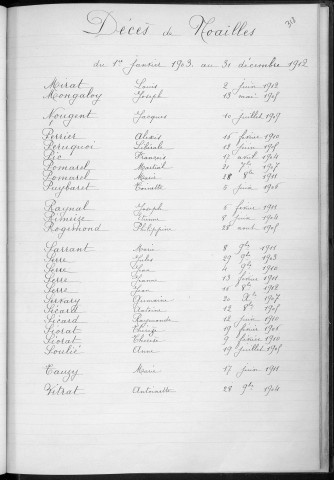 Décès de Noailles
du 1er Janvier 1903 au 31 décembre 1912
Merat Louis 2 juin 1912
Mongaloy Joseph 13 mai 1905
Nougent Jacques 10 juillet 1909
Perrier Alexis 15 février 1910
Peruquoi 12 juin 1905
Pic François 12 avril 1904
Pomarel Martial 21 7bre 1907
Pomarel Marie 28 8bre 1911
Puybaret 5 juin 1906
Raynal Joseph 6 février 1911
Etienne 8 juin 1904
Rogemond Philippine 28 avril 1905
Sarrant Marie 8 9bre 1911
Serre Jules 29 9bre 1903
Serre Jean 4 9bre 1910
Serre Jeanne 13 février 1911
Serre Jean 15 8bre 1912
Germaine 20 Xbre 1907
Sicard Antoine 12 8bre 1905
Sicard Raymonde 12 juin 1910
Siorat Thérèse 19 février 1906
Siorat Thérèse 9 février 1910
Soulié Anne 19 juillet 1905
Tauzy Marie 17 juin 1911
Vitrat Antoinette 28 9bre 1904